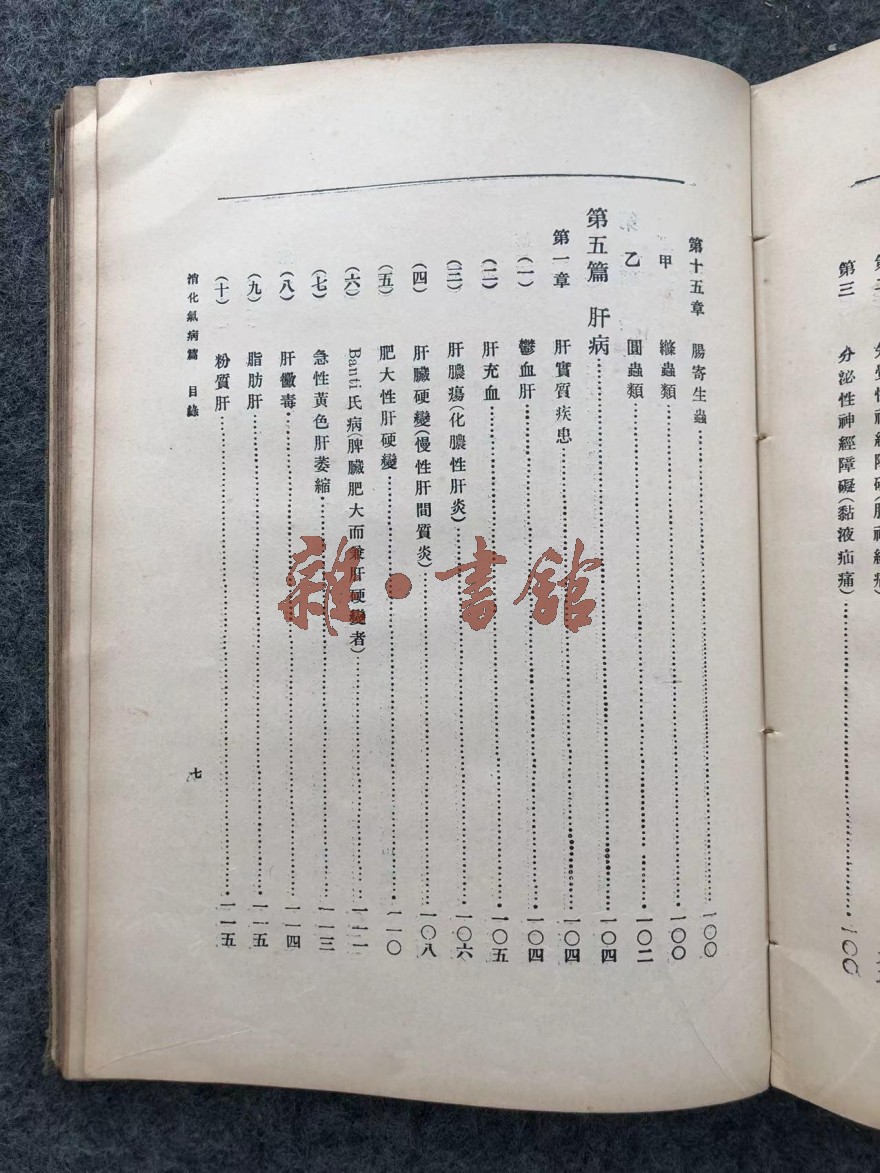 第三 分泌性神經障礙(黏液疝痛)……100
第十五章 腸寄生蟲……一〇〇
甲 縧蟲類……一〇〇
乙 圓蟲類……一〇二
第五篇 肝病……一〇四
第一章 肝實質疾患……一〇四
(一) 鬱血肝……一〇四
(二) 肝充血……一〇五
(三) 肝膿瘍(化膿性肝炎)……一〇六
(四) 肝臟硬變(慢性肝間質炎)……一〇八
(五) 肥大性肝硬變……一一〇
(六) Banti氏病(脾臟肥大而兼肝硬變者)……一一一
(七) 急性黃色肝萎縮……一一三
(八) 肝黴毒……一一四
(九) 脂肪肝……一一五
(十) 粉質肝……一一五
消化氣病篇 目錄 七
雜·書館